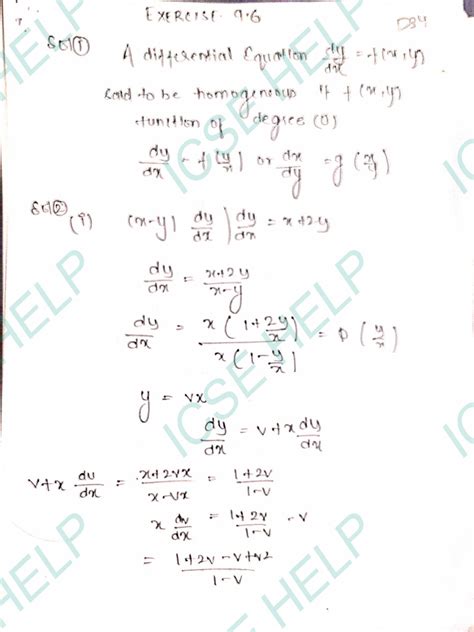 EXERCISE 9.6
Sol ①
A differential Equation dy/dx = f(x,y)
said to be homogeneous if f(x,y)
function of degree (0)
dy/dx = f(y/x) or dx/dy = g(x/y)
Sol ②
(i) (x-y) dy/dx ) dy/dx = x+2y
dy/dx = x+2y/x-y
dy/dx = x(1+2y/x)/x(1-y/x) = (y/x)
y = vx
dy/dx = v+x dy/dx
v+x dv/dx = x+2vx/x-vx = 1+2v/1-v
x dv/dx = 1+2v/1-v - v
= 1+2v-v+v2/1-v
ICSE HELP
ICSE HELP
ICSE HELP
ICSE HELP
ICSE HELP
ICSE HELP